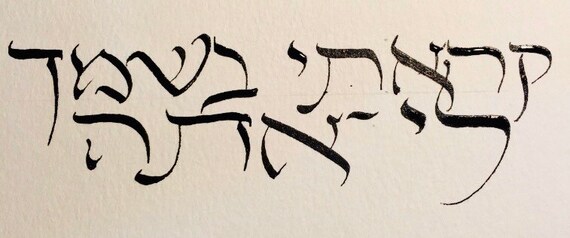 קראתי בשמך
לי-אתה